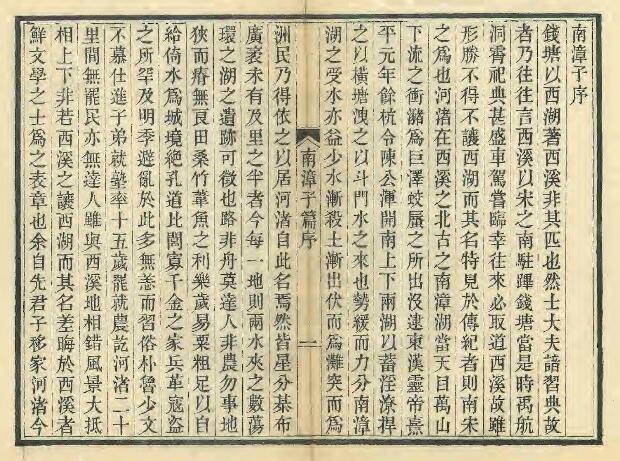 南漳子序
錢塘以西湖著西溪非其匹也然士大夫諳習典故
者乃往往言西溪以宋之南駐蹕錢塘當是時禹航
洞霄祀典甚盛車駕嘗臨幸往來必取道西溪故雖
形勝不得不讓西湖而其名特見於傳紀者則南宋
之爲也河渚在西溪之北古之南漳湖當天目萬山
下流之衝瀦爲巨澤蛟蜃之所出沒逮東漢靈帝熹
平元年餘杭令陳公渾開南上下兩湖以蓄淫潦捍
之以橫塘洩之以斗門水之來也勢緩而力分南漳
湖之受水亦益少水漸殺土漸出伏而爲灘突而爲
南漳子篇序
一
洲民乃得依之以居河渚自此名焉然皆星分棊布
廣袤未有及里之半者今每一地則兩水夾之數蕩
環之湖之遺跡可徵也路非舟莫達人非農勿事地
狹而瘠無良田桑竹葦魚之利樂歲易粟粗足以自
給倚水爲城境絕孔道比閭寡千金之家兵革寇盜
之所罕及明季避亂於此多無恙而習俗朴魯少文
不慕仕進子弟就塾率十五歲罷就農訖河渚二十
里間無罷民亦無達人雖與西溪地相錯風景大抵
相上下非若西溪之讓西湖而其名差晦於西溪者
鮮文學之士爲之表章也余自先君子移家河渚今